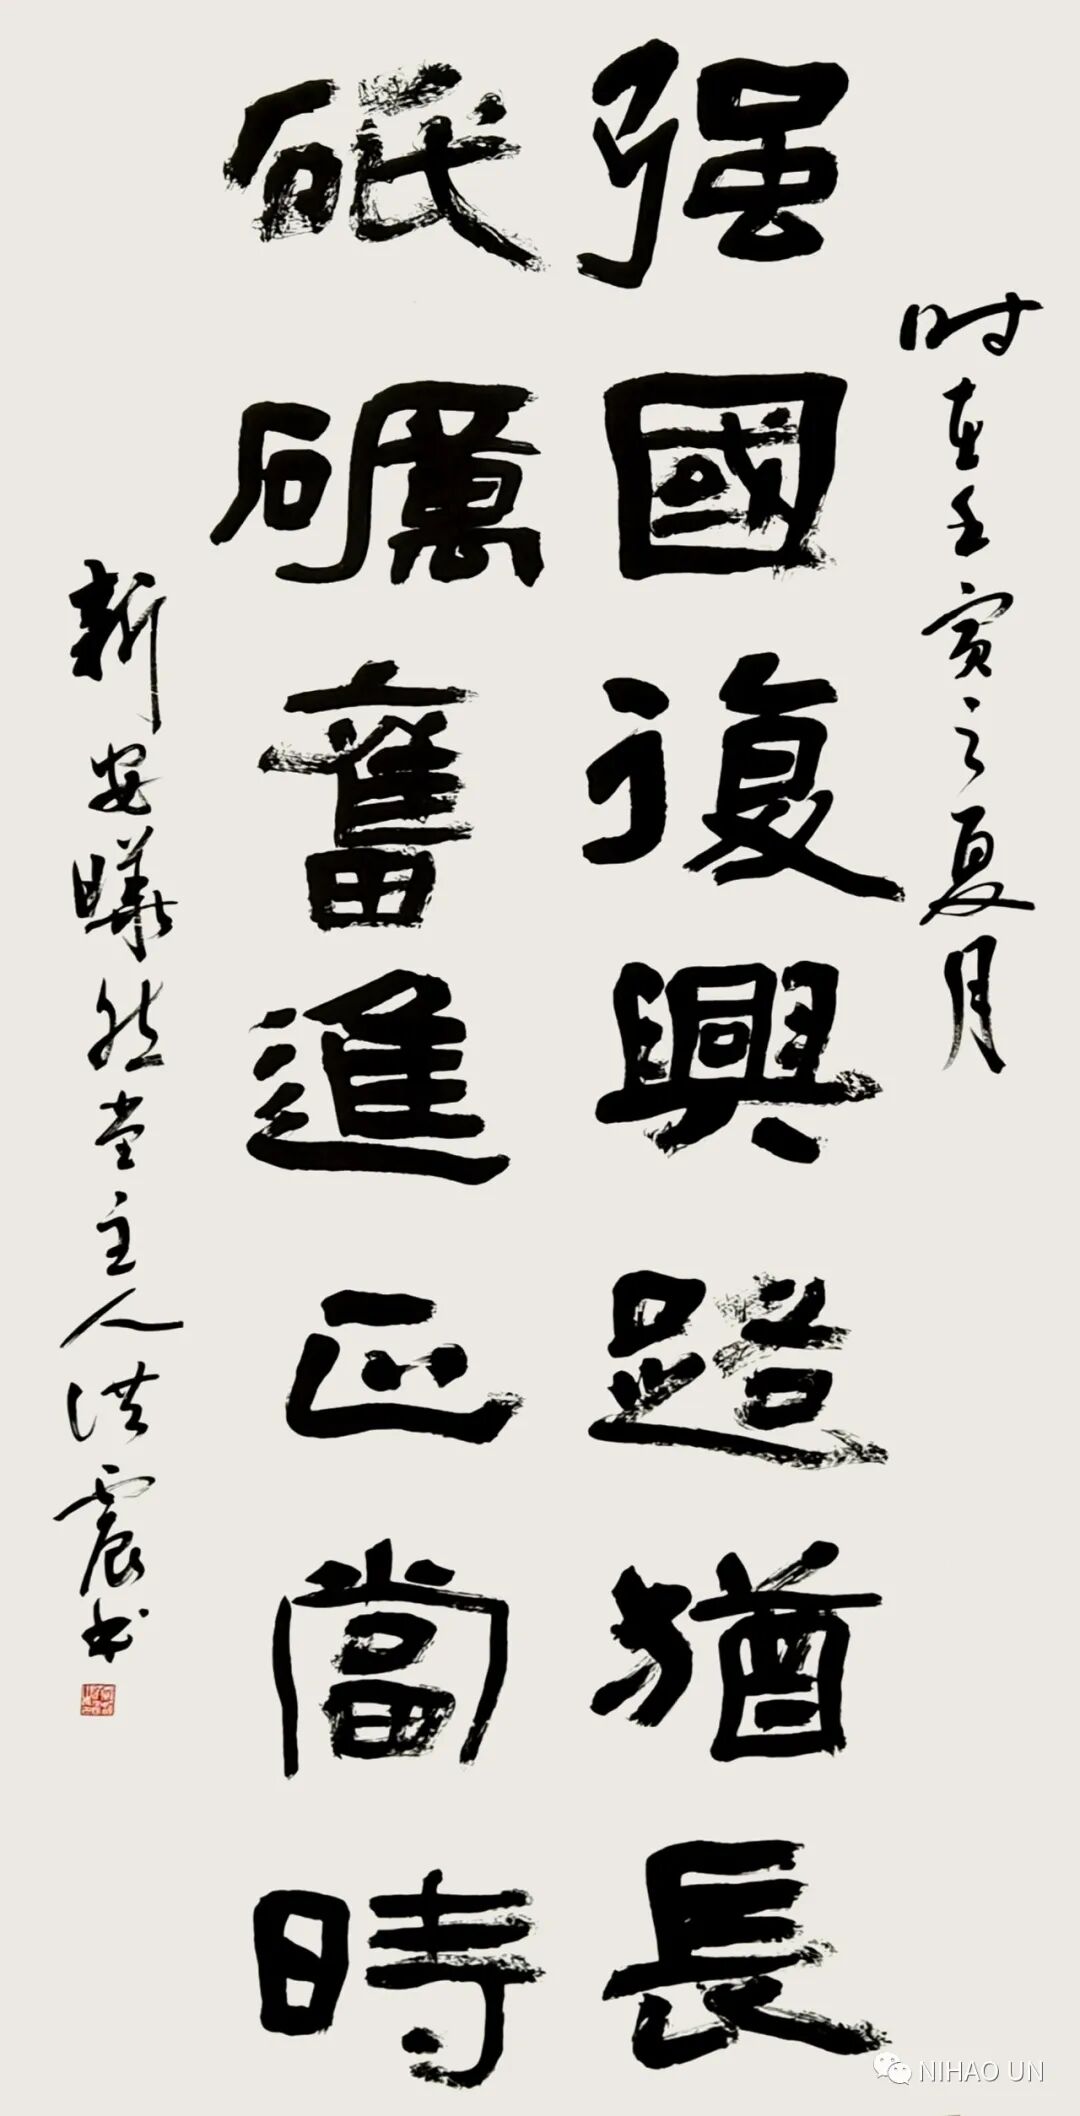 时在壬寅之夏月
强國復興路猶長
砥礪奮進正當時
新安曦然堂主人洪震书
NIHAO UN